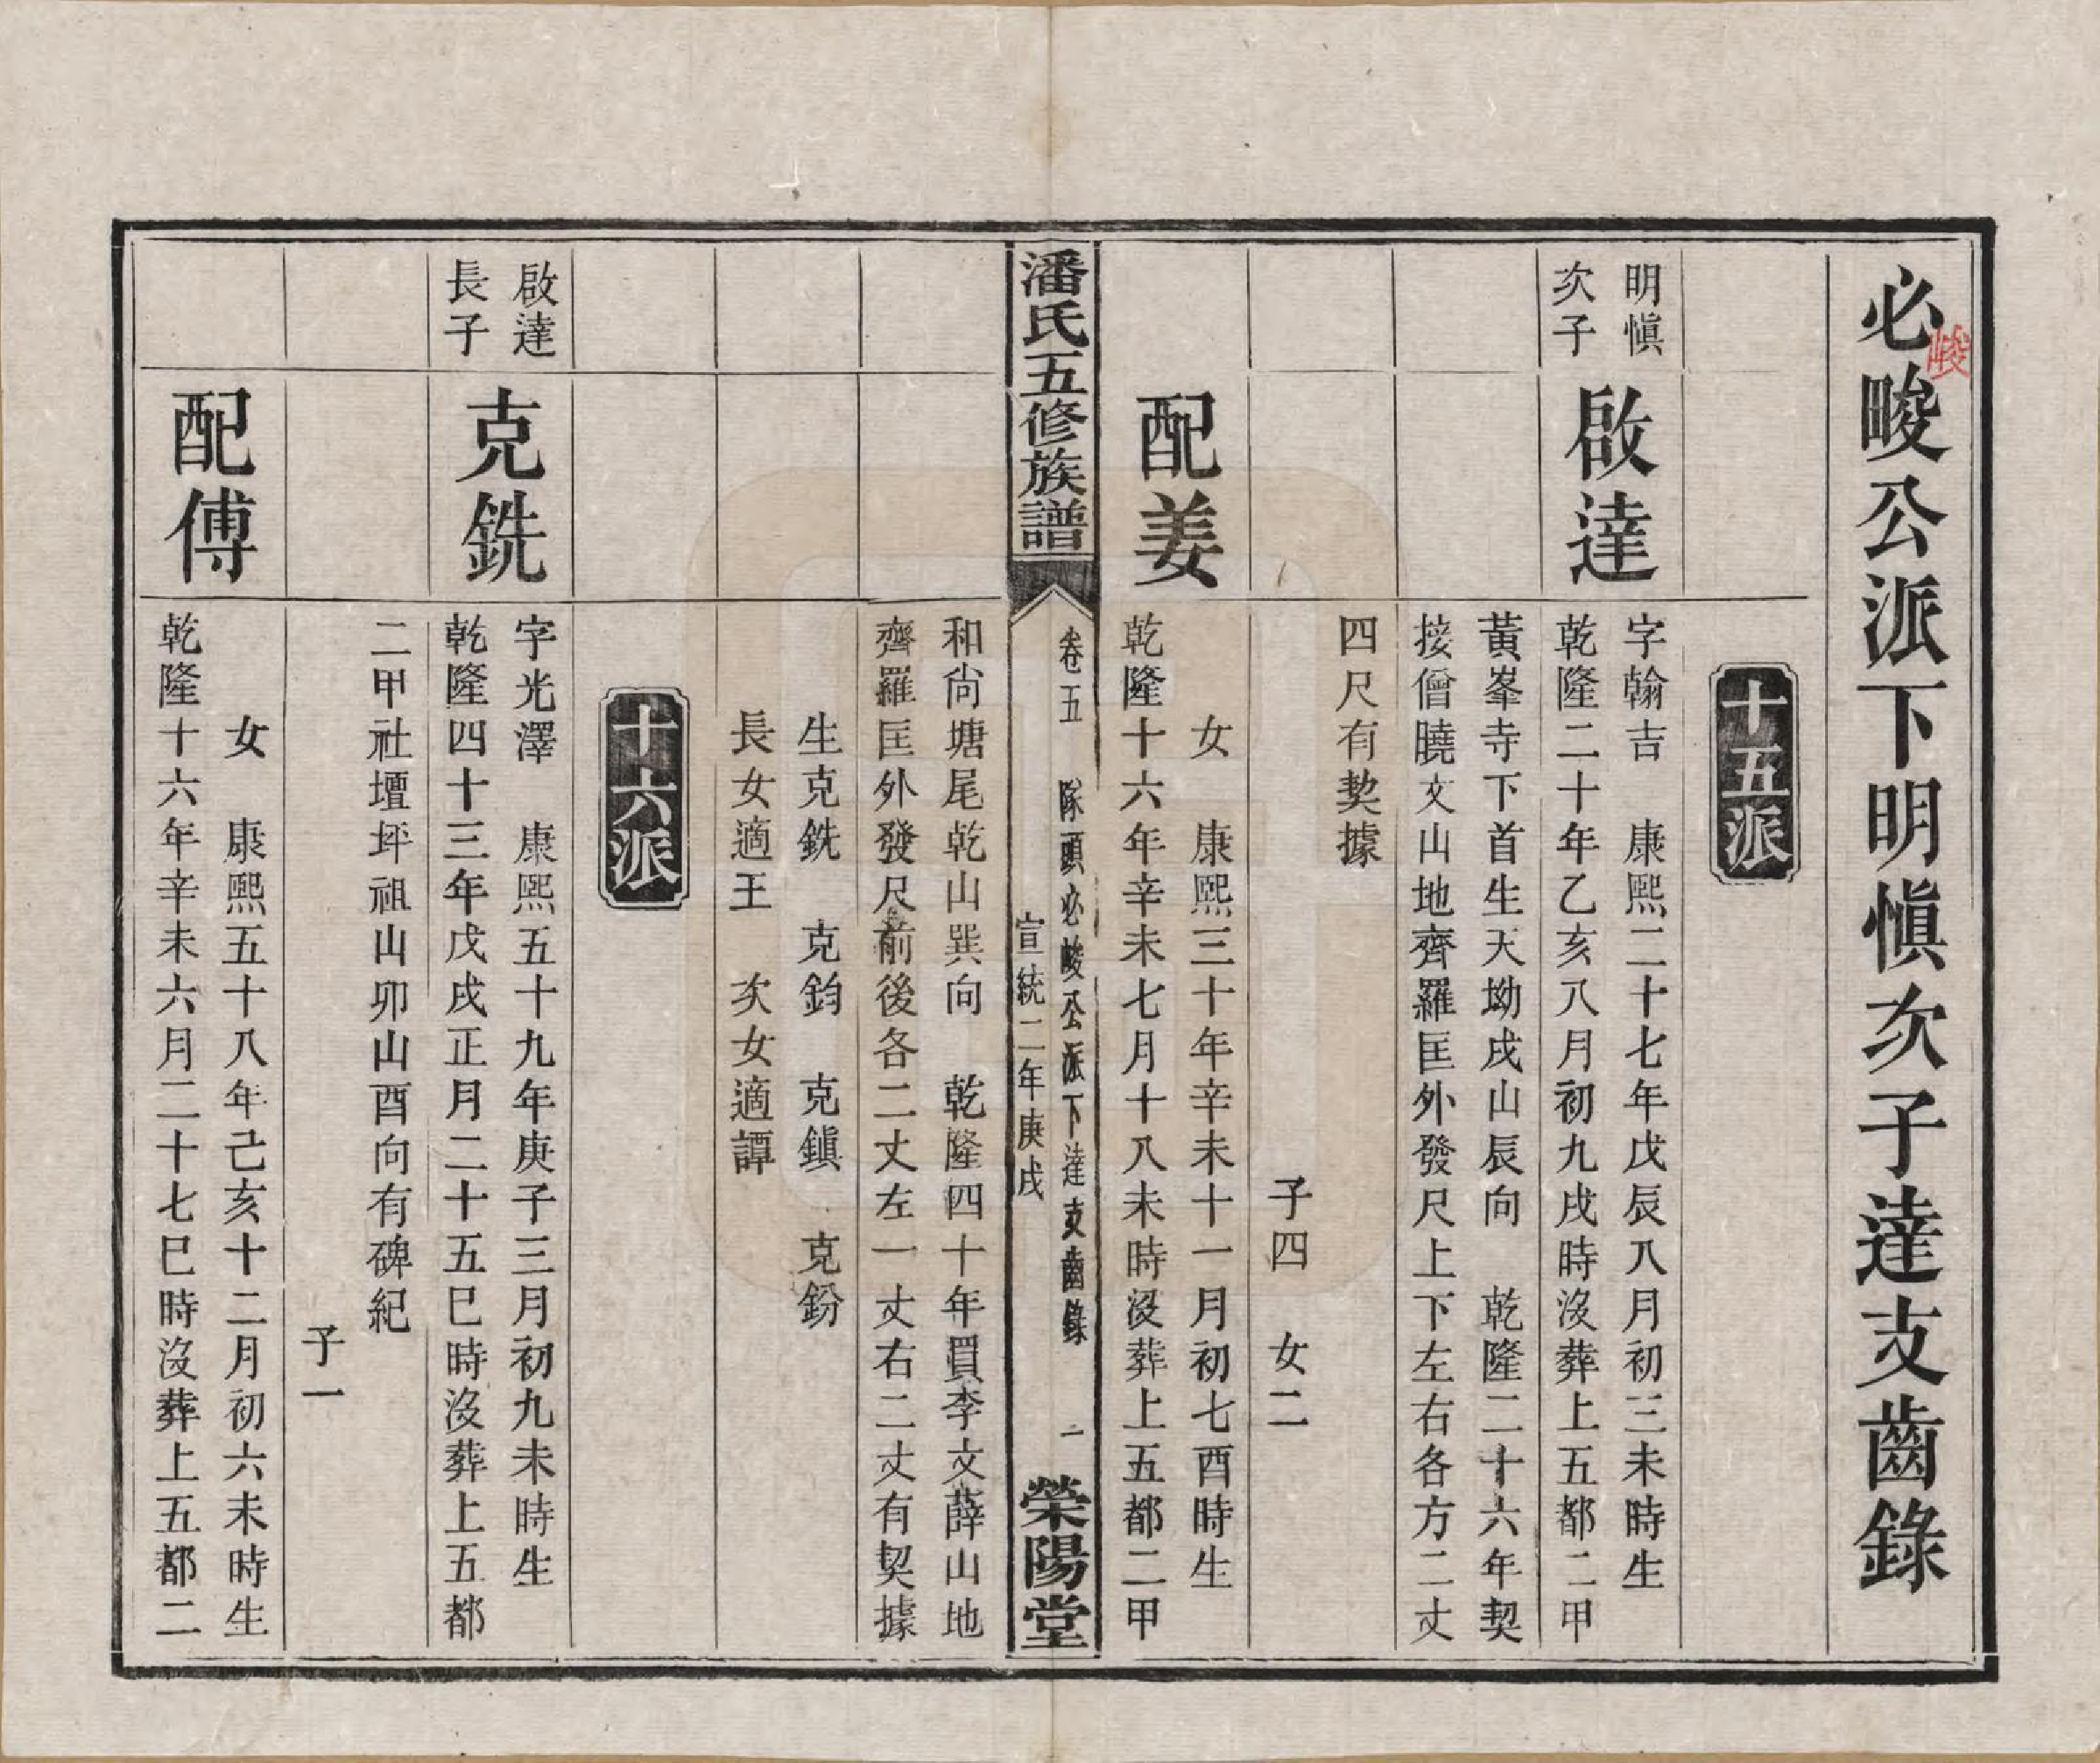 必畯公派下明慎次子達支齒錄
峻
十五派
明慎
次子
啟達
字翰吉　康熙二十七年戊辰八月初三未時生
乾隆二十年乙亥八月初九戌時沒葬上五都二甲
黃峯寺下首生天坳戌山辰向　乾隆二十六年契
接僧曉文山地齊羅匡外發尺上下左右各方二丈
四尺有契據
子四　女二
配姜
女　康熙三十年辛未十一月初七酉時生
乾隆十六年辛未七月十八未時沒葬上五都二甲
潘氏五修族譜
卷五　隊頭必畯公派下達支齒錄　一
宣統二年庚戌
榮陽堂
和尚塘尾乾山巽向　乾隆四十年買李文薛山地
齊羅匡外發尺前後各二丈左一丈右二丈有契據
生克銑　克鈞　克鎮　克鈖
長女適王　次女適譚
十六派
啟達
長子
克銑
字光澤　康熙五十九年庚子三月初九未時生
乾隆四十三年戊戌正月二十五巳時沒葬上五都
二甲社壇坪祖山卯山酉向有碑紀
子一
配傅
女　康熙五十八年己亥十二月初六未時生
乾隆十六年辛未六月二十七巳時沒葬上五都二